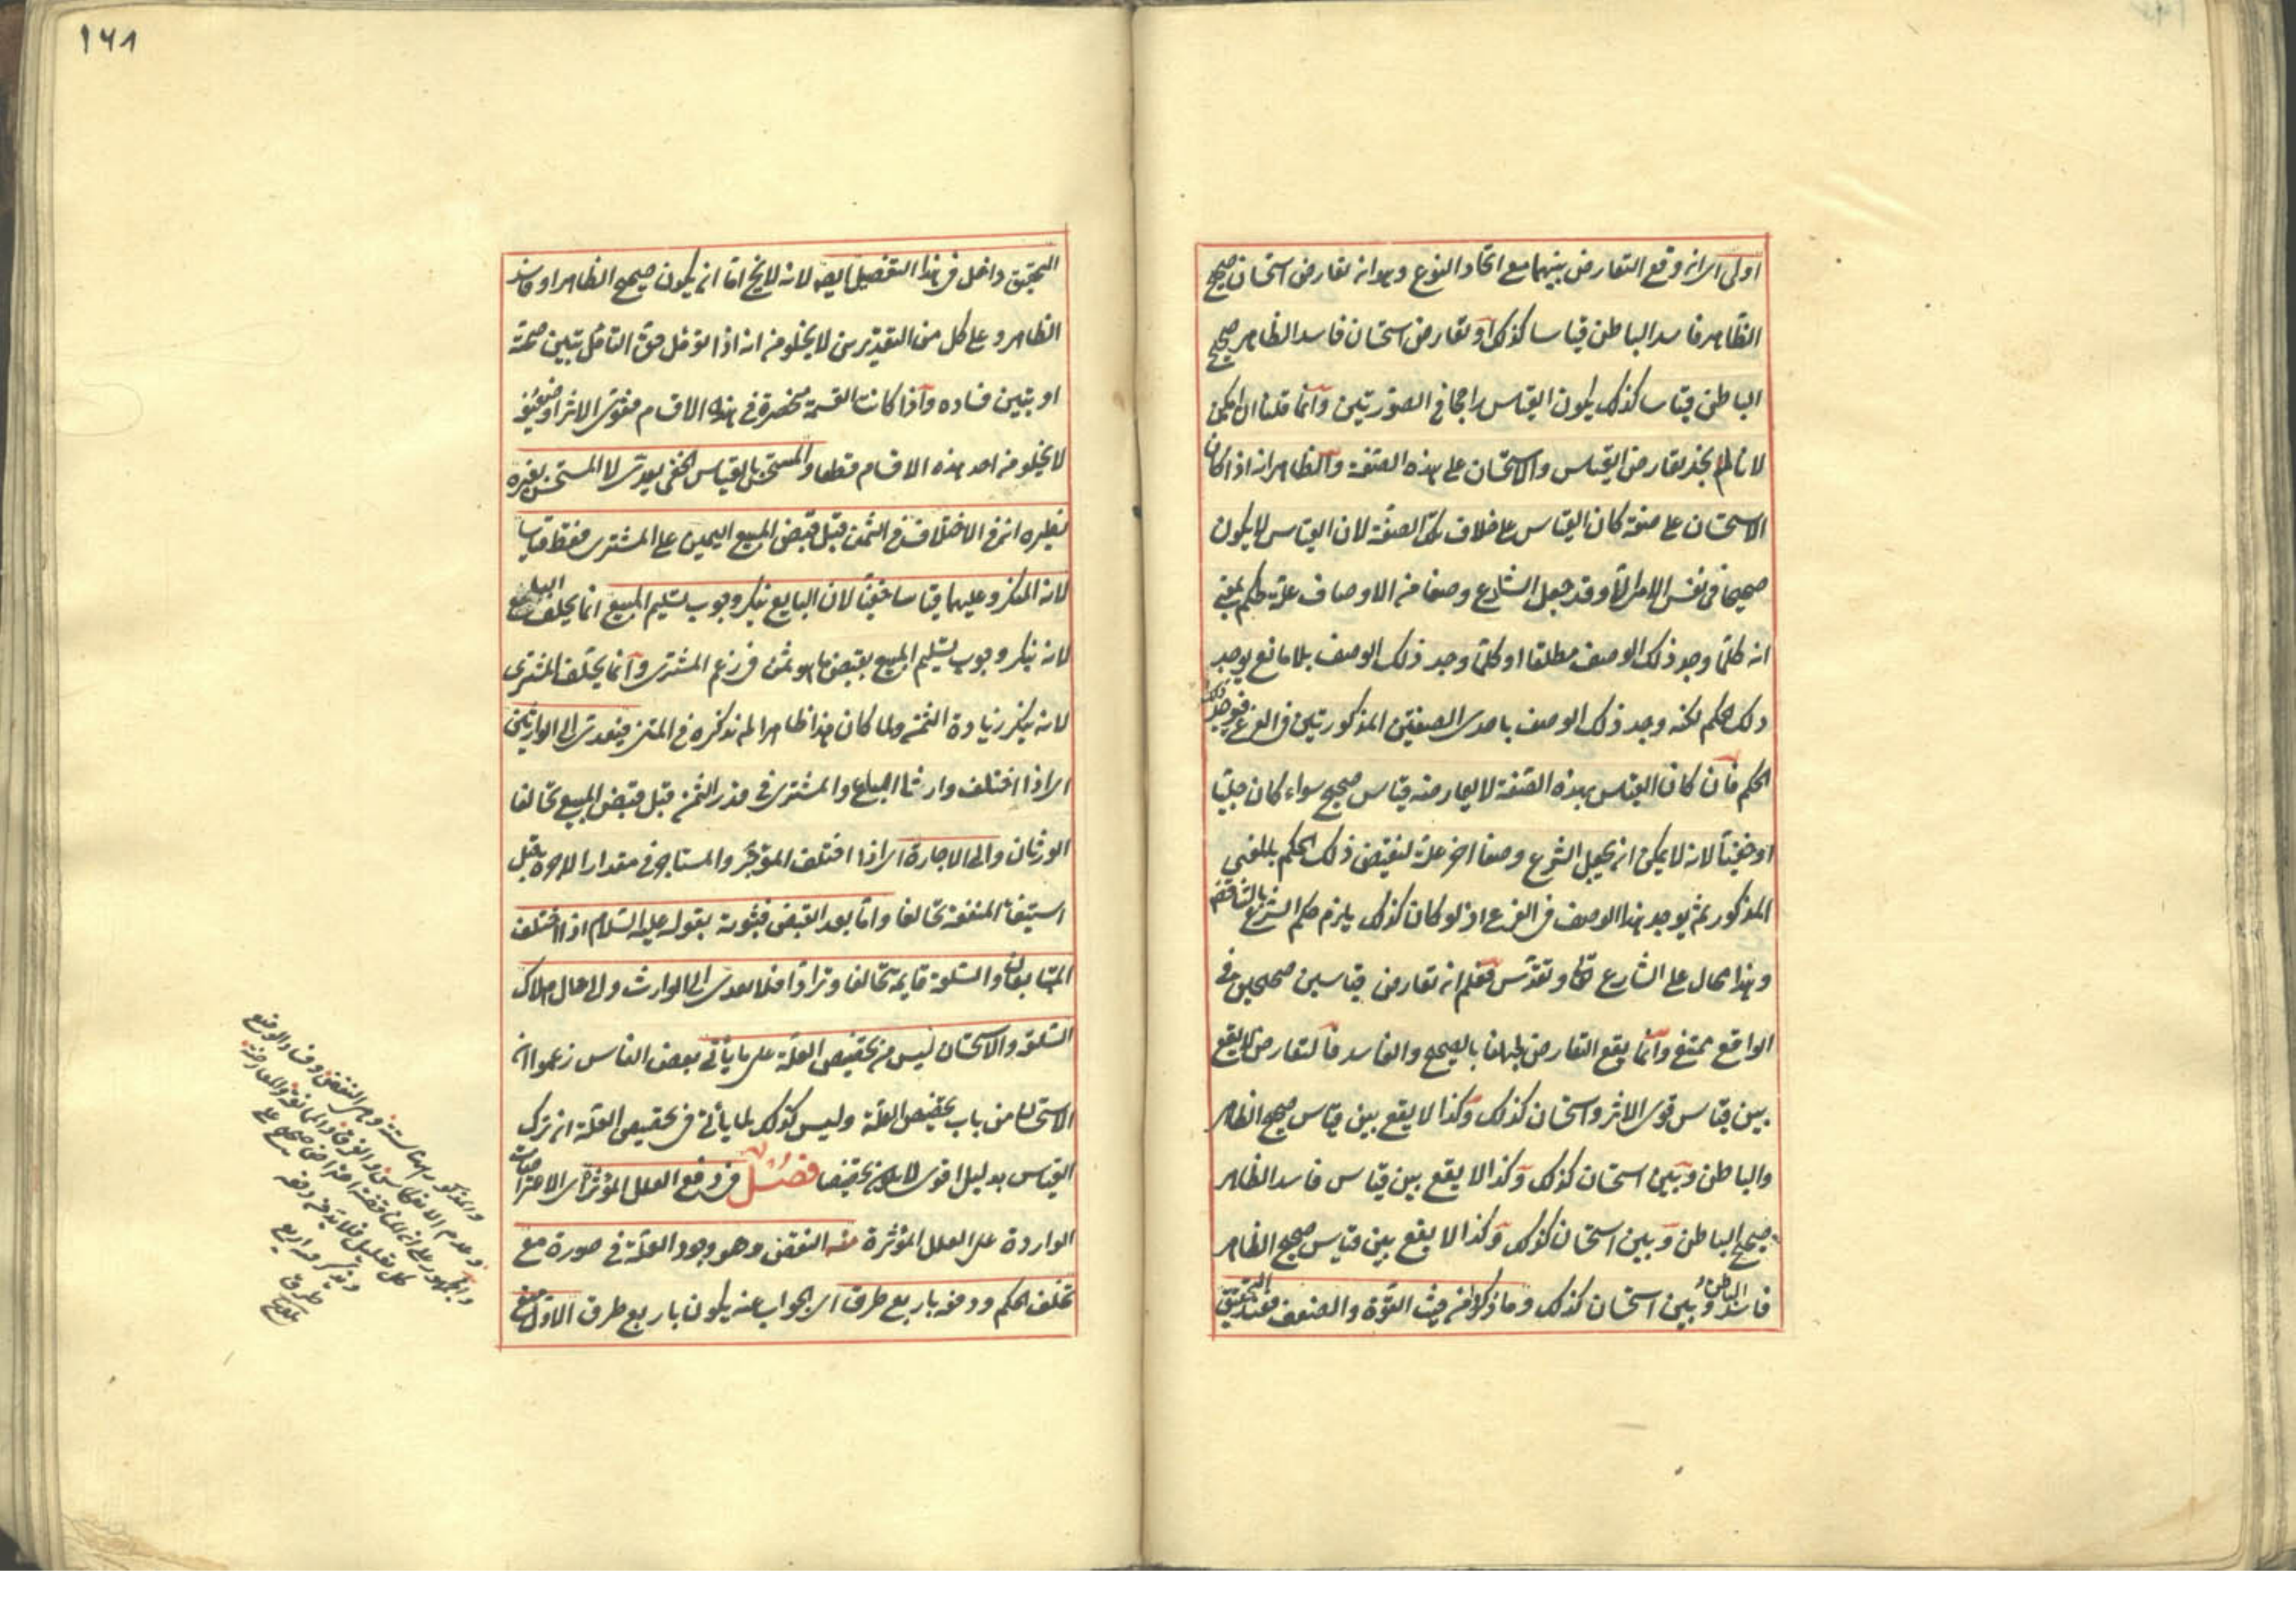 اولى اى ان وقع التعارض بينهما مع اتحاد النوع وهو ان تعارض استحسان صحيح
الظاهر فاسد الباطن قياسا كذلك او تعارض استحسان فاسد الظاهر صحيح
الباطن قياسا كذلك يكون القياس راجحا في الصورتين وانما قلنا ان امكن
لانا لم نجد تعارض القياس والاستحسان على هذه الصفة والظاهر انه اذا كان
الاستحسان على صفة كان القياس على خلاف تلك الصفة لان القياس لا يكون
صحيحا في نفس الامر الا وقد جعل الشارع وصفا من الاوصاف علة لحكم بمعنى
انه كلما وجد ذلك الوصف مطلقا او كلما وجد ذلك الوصف بلا مانع يوجد
ذلك الحكم لكنه وجد ذلك الوصف باحدى الصفتين المذكورتين في الفرع فيوجد ذلك
الحكم فان كان القياس بهذه الصفة لا يعارضه قياس صحيح سواء كان جليا
او خفيا لانه لا يمكن ان يجعل الشرع وصفا اخر علة لنقيض ذلك الحكم بالمعنى
المذكور ثم يوجد هذا الوصف في الفرع اذ لو كان كذلك يلزم حكم الشرع بالتناقض
وهذا محال على الشارع تعالى وتقدس فعلم ان تعارض قياسين صحيحين في
الواقع ممتنع وانما يقع التعارض لجهلنا بالصحيح والفاسد فالتعارض لا يقع
بين قياس قوى الاثر واستحسان كذلك وكذا لا يقع بين قياس صحيح الظاهر
والباطن وبين استحسان كذلك وكذا لا يقع بين قياس فاسد الظاهر
صحيح الباطن وبين استحسان كذلك وكذا لا يقع بين قياس صحيح الظاهر
فاسد الباطن وبين استحسان كذلك وما ذكروا من حيث القوة والضعف فعند التحقيق
١٦٨
التحقيق داخل في هذا التفصيل ايضا لانه لا يخ اما ان يكون صحيح الظاهر او فاسد
الظاهر وعلى كل من التقديرين لا يخلو من انه اذا تؤمل حق التامل يتبين صحته
او يتبين فساده واذا كانت القسمة منحصرة في هذه الاقسام فقوى الاثر او ضعيفه
لا يخلو من احد هذه الاقسام قطعا والمستحسن بالقياس الخفى يعدى لا المستحسن بغيره
نظيره ان في الاختلاف في الثمن قبل قبض المبيع اليمين على المشترى فقط قياسا
لانه المنكر وعليهما قياسا خفيا لان البايع ينكر وجوب تسليم المبيع انما يحلف البايع
لانه ينكر وجوب تسليم المبيع بقبض ما هو ثمن في زعم المشترى وانما يحلف المشترى
لانه ينكر زيادة الثمن ولما كان هذا ظاهرا لم نذكره في المتن فيعدى الى الوارثين
اى اذا اختلف وارثا البايع والمشترى في قدر الثمن قبل قبض المبيع تحالفا
الوارثان والى الاجارة اى اذا اختلف المؤجر والمستاجر في مقدار الاجرة قبل
استيفاء المنفعة تحالفا واما بعد القبض فثبوته بقوله عليه السلام اذا اختلف
المتبايعان والسلعة قايمة تحالفا وترادا فلا يعدى الى الوارث ولا الى حال هلاك
السلعة والاستحسان ليس من تخصيص العلة على ما يأتى بعض الناس زعموا ان
الاستحسان من باب تخصيص العلة وليس كذلك لما يأتى في تخصيص العلة ان ترك
القياس بدليل اقوى لا يكون تخصيصا فصل في دفع العلل المؤثرة اى الاعتراضات
الواردة على العلل المؤثرة منه النقض وهو وجود العلة في صورة مع
تخلف الحكم ودفعه باربع طرق اى الجواب عنه يكون باربع طرق الاول منع
والمذكور ههنا ستة وهى النقض وفساد الوضع
وعدم الانعكاس والفرق والممانعة والمعارضة
والجمهور على ان المناقضة اعتراض صحيح على
كل تعليل فلا بد من دفعه
وذكر فيه اربع
طرق
تلويح